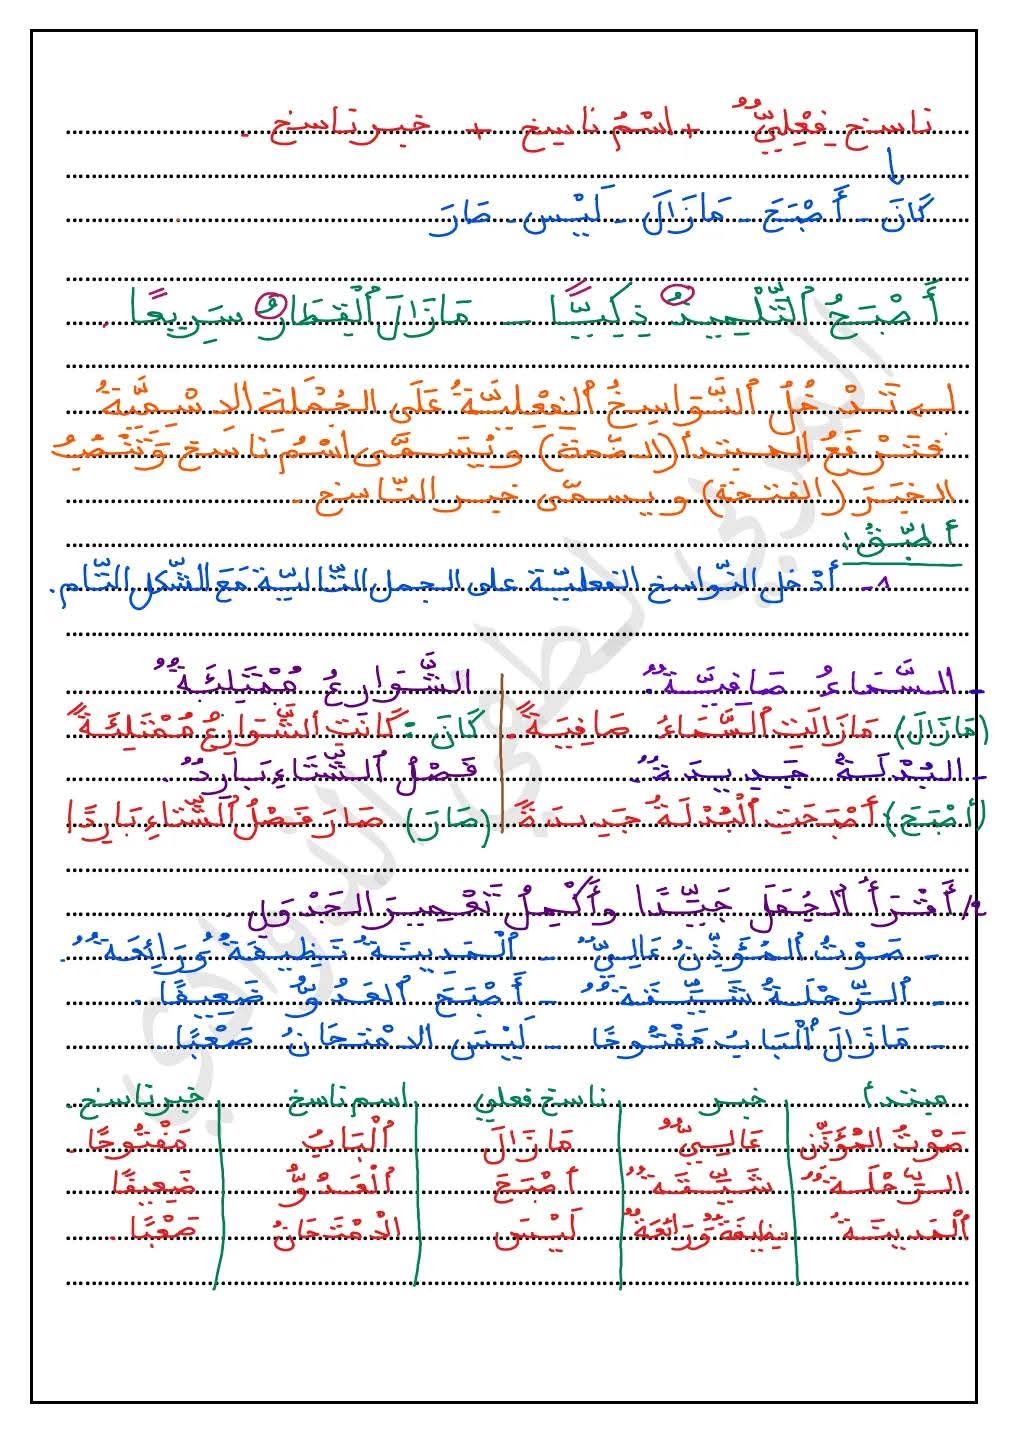 ناسخ فِعْلِيٌّ + اسْمُ نَاسِخ + خبر ناسخ .
كَانَ - أَصْبَحَ - مَازَالَ - لَيْسَ - صَارَ
أَصْبَحَ ٱلتِّلْمِيذُ ذَكِيًّا - مَازَالَ ٱلْقِطَارُ سَرِيعًا .
تَدْخُلُ ٱلنَّوَاسِخُ ٱلفِعْلِيَّةُ عَلَى الجُمْلَةِ الاِسْمِيَّةُ
فَتَرْفَعُ المبتدأ (الضمة) ويُسَمَّى اسْمُ نَاسخ وَتَنْصُبُ
الخبَرَ (الفتحة) ويسمّى خبر النّاسخ .
أطبّقُ :
1- أدْخل النّواسخ الفعليّة على الجمل التّاليّة مَعَ الشّكل التّام .
- السَّمَاءُ صَافِيَةٌ . الشَّوَارِعُ مُمْتَلِئَةٌ
(مَازَالَ) مَازَالَتِ ٱلسَّمَاءُ صَافِيَةً . كَانَ : كَانَتِ ٱلشَّوَارِعُ مُمْتَلِئَةً
- البُدْلَةُ جَدِيدَةٌ . فَصْلُ ٱلشِّتَاءِ بَارِدٌ .
(أَصْبَحَ) أَصْبَحَتِ ٱلْبُدْلَةُ جَدِيدَةً (صَارَ) صَارَ فَصْلُ ٱلشِّتَاءِ بَارِدًا
2/ أَقْرَأُ ٱلجُمَلَ جَيِّدًا وأُكْمِلُ تَعْمِيرَ الجَدْوَلِ .
- صَوْتُ ٱلمُؤَذِّنُ عَالِيٌّ - ٱلْمَدِينَةُ نَظِيفَةٌ وَرَائِعَةٌ .
- ٱلرِّحْلَةُ شَيِّقَةٌ - أَصْبَحَ ٱلعَدُوُّ ضَعِيفًا .
- مَازَالَ ٱلْبَابُ مَفْتُوحًا - لَيْسَ الاِمْتِحَانُ صَعْبًا .
مبتدأ خبر ناسخ فعلي اسم ناسخ خبر ناسخ .
صَوْتُ المُؤَذِّن عَالِيٌّ مَازَالَ ٱلْبَابُ مَفْتُوحًا .
الرِّحْلَةُ شَيِّقَةٌ أصْبَحَ ٱلْعَدُوُّ ضَعِيفًا
ٱلْمَدِينَةُ نظيفَةٌ وَرَائعَةٌ لَيْسَ الاِمْتَحَانُ صَعْبًا .